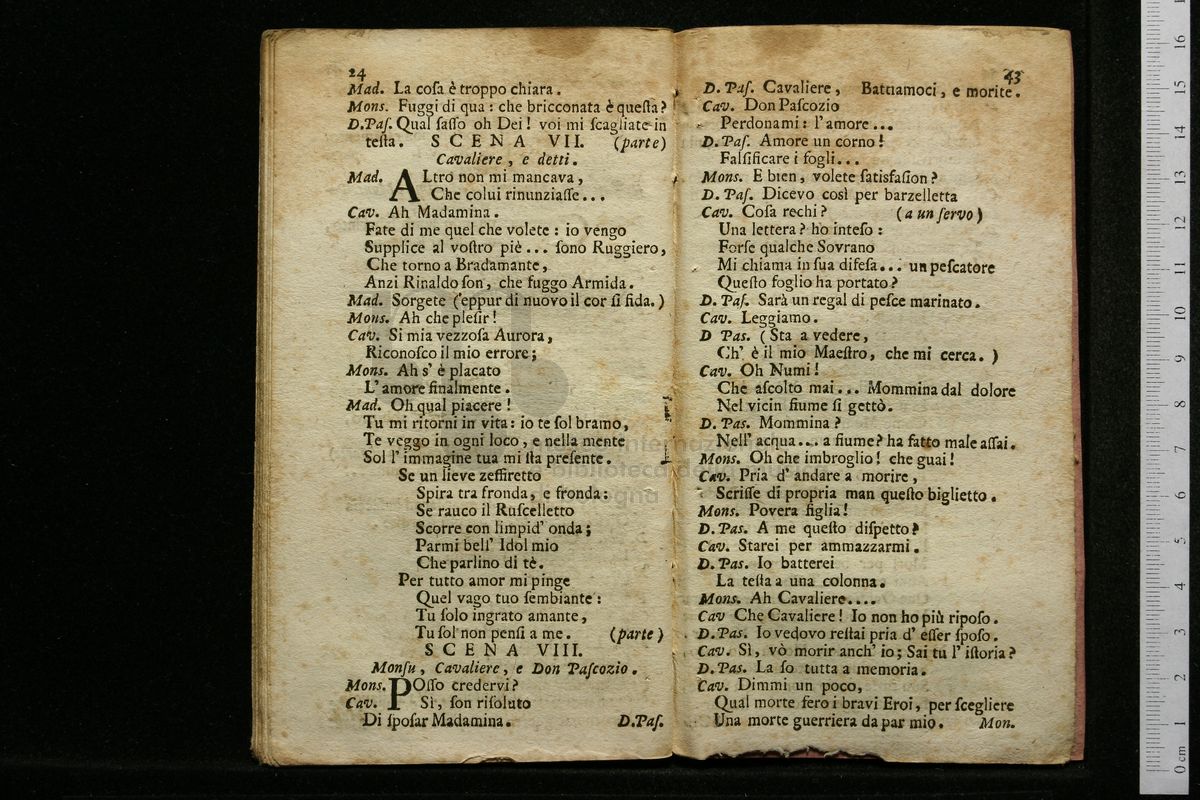 24
Mad. La coſa è troppo chiara.
Mons. Fuggi di qua: che bricconata è queſta?
D.Paſ. Qual ſaſſo oh Dei! voi mi ſcagliate in
teſta. SCENA VII. (parte)
Cavaliere, e detti.
Mad. ALtro non mi mancava,
Che colui rinunziaſſe...
Cav. Ah Madamina.
Fate di me quel che volete: io vengo
Supplice al voſtro piè... ſono Ruggiero,
Che torno a Bradamante,
Anzi Rinaldo ſon, che fuggo Armida.
Mad. Sorgete (eppur di nuovo il cor ſi fida.)
Mons. Ah che pleſir!
Cav. Si mia vezzoſa Aurora,
Riconoſco il mio errore;
Mons. Ah s' è placato
L' amore finalmente.
Mad. Oh qual piacere!
Tu mi ritorni in vita: io te ſol bramo,
Te veggo in ogni loco, e nella mente
Sol l' immagine tua mi ſta preſente.
Se un lieve zeffiretto
Spira tra fronda, e fronda:
Se rauco il Ruſcelletto
Scorre con limpid' onda;
Parmi bell' Idol mio
Che parlino di tè.
Per tutto amor mi pinge
Quel vago tuo ſembiante:
Tu ſolo ingrato amante,
Tu ſol non penſi a me. (parte)
SCENA VIII.
Monſu, Cavaliere, e Don Paſcozio.
Mons. POſſo credervi?
Cav. Sì, ſon riſoluto
Di ſpoſar Madamina. D.Paſ.
43
D. Paſ. Cavaliere, Battiamoci, e morite.
Cav. Don Paſcozio
Perdonami: l' amore...
D. Paſ. Amore un corno!
Falſificare i fogli...
Mons. E bien, volete ſatisfaſion?
D. Paſ. Dicevo così per barzelletta
Cav. Coſa rechi? (a un ſervo)
Una lettera? ho inteſo:
Forſe qualche Sovrano
Mi chiama in ſua difeſa... un peſcatore
Queſto foglio ha portato?
D. Paſ. Sarà un regal di peſce marinato.
Cav. Leggiamo.
D Pas. (Sta a vedere,
Ch' è il mio Maeſtro, che mi cerca.)
Cav. Oh Numi!
Che aſcolto mai... Mommina dal dolore
Nel vicin fiume ſi gettò.
D. Pas. Mommina?
Nell' acqua... a fiume? ha fatto male aſſai.
Mons. Oh che imbroglio! che guai!
Cav. Pria d' andare a morire,
Scriſſe di propria man queſto biglietto.
Mons. Povera figlia!
D. Pas. A me queſto diſpetto?
Cav. Starei per ammazzarmi.
D. Pas. Io batterei
La teſta a una colonna.
Mons. Ah Cavaliere....
Cav Che Cavaliere! Io non ho più ripoſo.
D. Pas. Io vedovo reſtai pria d' eſſer ſpoſo.
Cav. Sì, vò morir anch' io; Sai tu l' iſtoria?
D. Pas. La ſo tutta a memoria.
Cav. Dimmi un poco,
Qual morte fero i bravi Eroi, per ſcegliere
Una morte guerriera da par mio. Mon.
16
15
14
13
12
11
10
9
8
7
6
5
4
3
2
1
0 cm